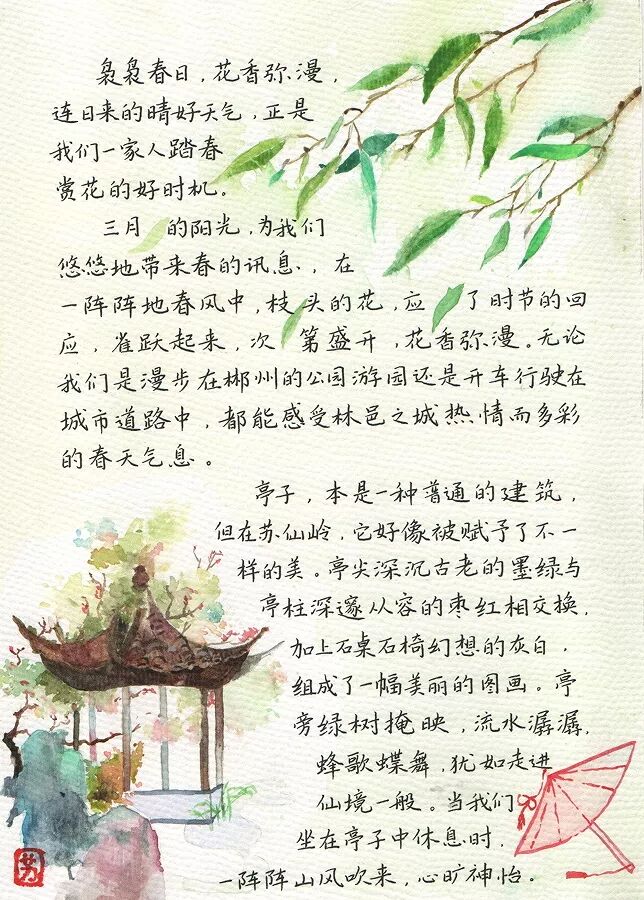 袅袅春日，花香弥漫，
连日来的晴好天气，正是
我们一家人踏春
赏花的好时机。
三月 的阳光，为我们
悠悠地带来春的讯息.，在
一阵阵地春风中，枝头的花，应 了时节的回
应，雀跃起来，次 第盛开，花香弥漫。无论
我们是漫步在郴州的公园游园还是开车行驶在
城市道路中，都能感受林邑之城热情而多彩
的春天气息。
亭子，本是一种普通的建筑，
但在苏仙岭，它好像被赋予了不一
样的美。亭尖深沉古老的墨绿与
亭柱深邃从容的枣红相交换，
加上石桌石椅幻想的灰白，
组成了一幅美丽的图画。亭
旁绿树掩映，流水潺潺，
蜂歌蝶舞，犹如走进
仙境一般。当我们
坐在亭子中休息时，
一阵阵山风吹来，心旷神怡。